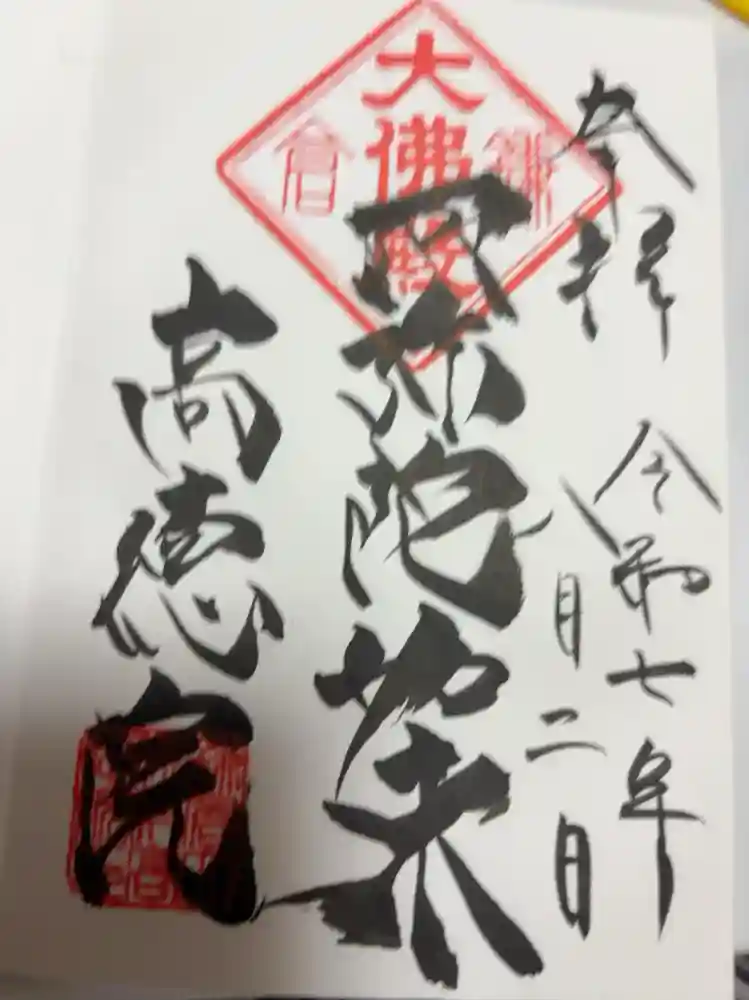 奉拝
令和七年
八月二日
大佛殿
鎌倉
阿弥陀如来
高徳院